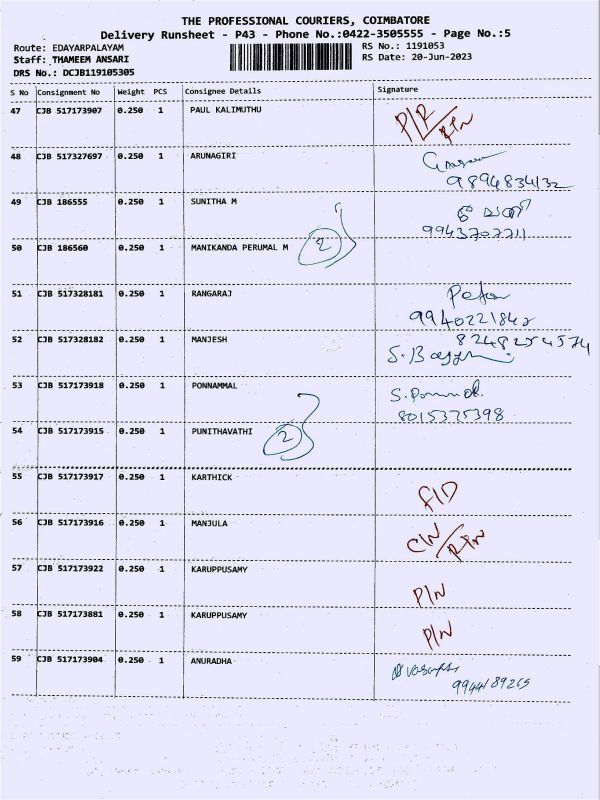 THE PROFESSIONAL COURIERS, COIMBATORE
Delivery Runsheet - P43 - Phone No.:0422-3505555 - Page No.:5
Route: EDAYARPALAYAM
RS No.: 1191053
Staff: THAMEEM ANSARI
RS Date: 20-Jun-2023
DRS No.: DCJB119105305
S No Consignment No Weight PCS Consignee Details Signature
47 CJB 517173907 0.250 1 PAUL KALIMUTHU
48 CJB 517327697 0.250 1 ARUNAGIRI
9894834132
49 CJB 186555 0.250 1 SUNITHA M
9943707711
50 CJB 186560 0.250 1 MANIKANDA PERUMAL M 2
51 CJB 517328181 0.250 1 RANGARAJ
9940221842
52 CJB 517328182 0.250 1 MANJESH
53 CJB 517173918 0.250 1 PONNAMMAL
8015375398
54 CJB 517173915 0.250 1 PUNITHAVATHI 2
55 CJB 517173917 0.250 1 KARTHICK
56 CJB 517173916 0.250 1 MANJULA
57 CJB 517173922 0.250 1 KARUPPUSAMY
P/N
58 CJB 517173881 0.250 1 KARUPPUSAMY
P/N
59 CJB 517173904 0.250 1 ANURADHA
9944189265